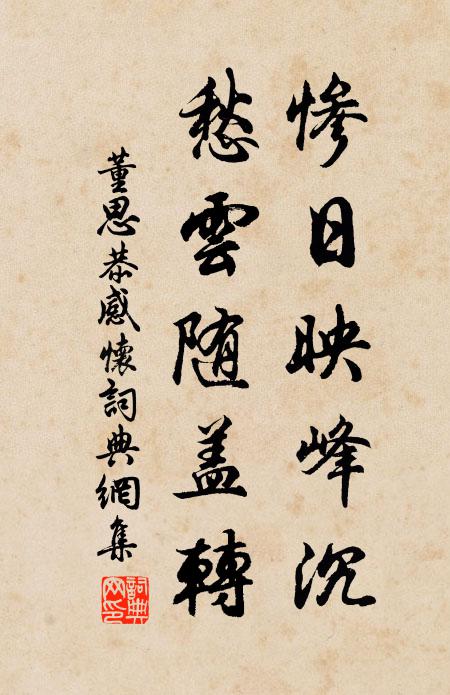 惨日映峰沉
愁雲随盖轉
董思恭感懷詞典網集
詞典網印